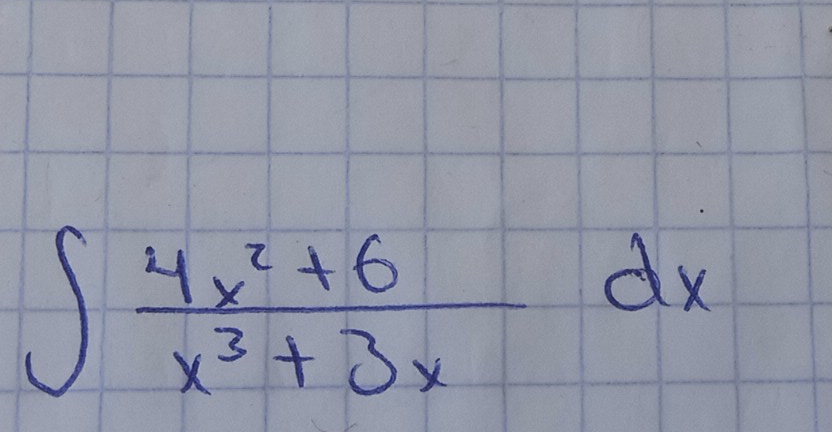 ∫ (4x² + 6)/(x³ + 3x) dx